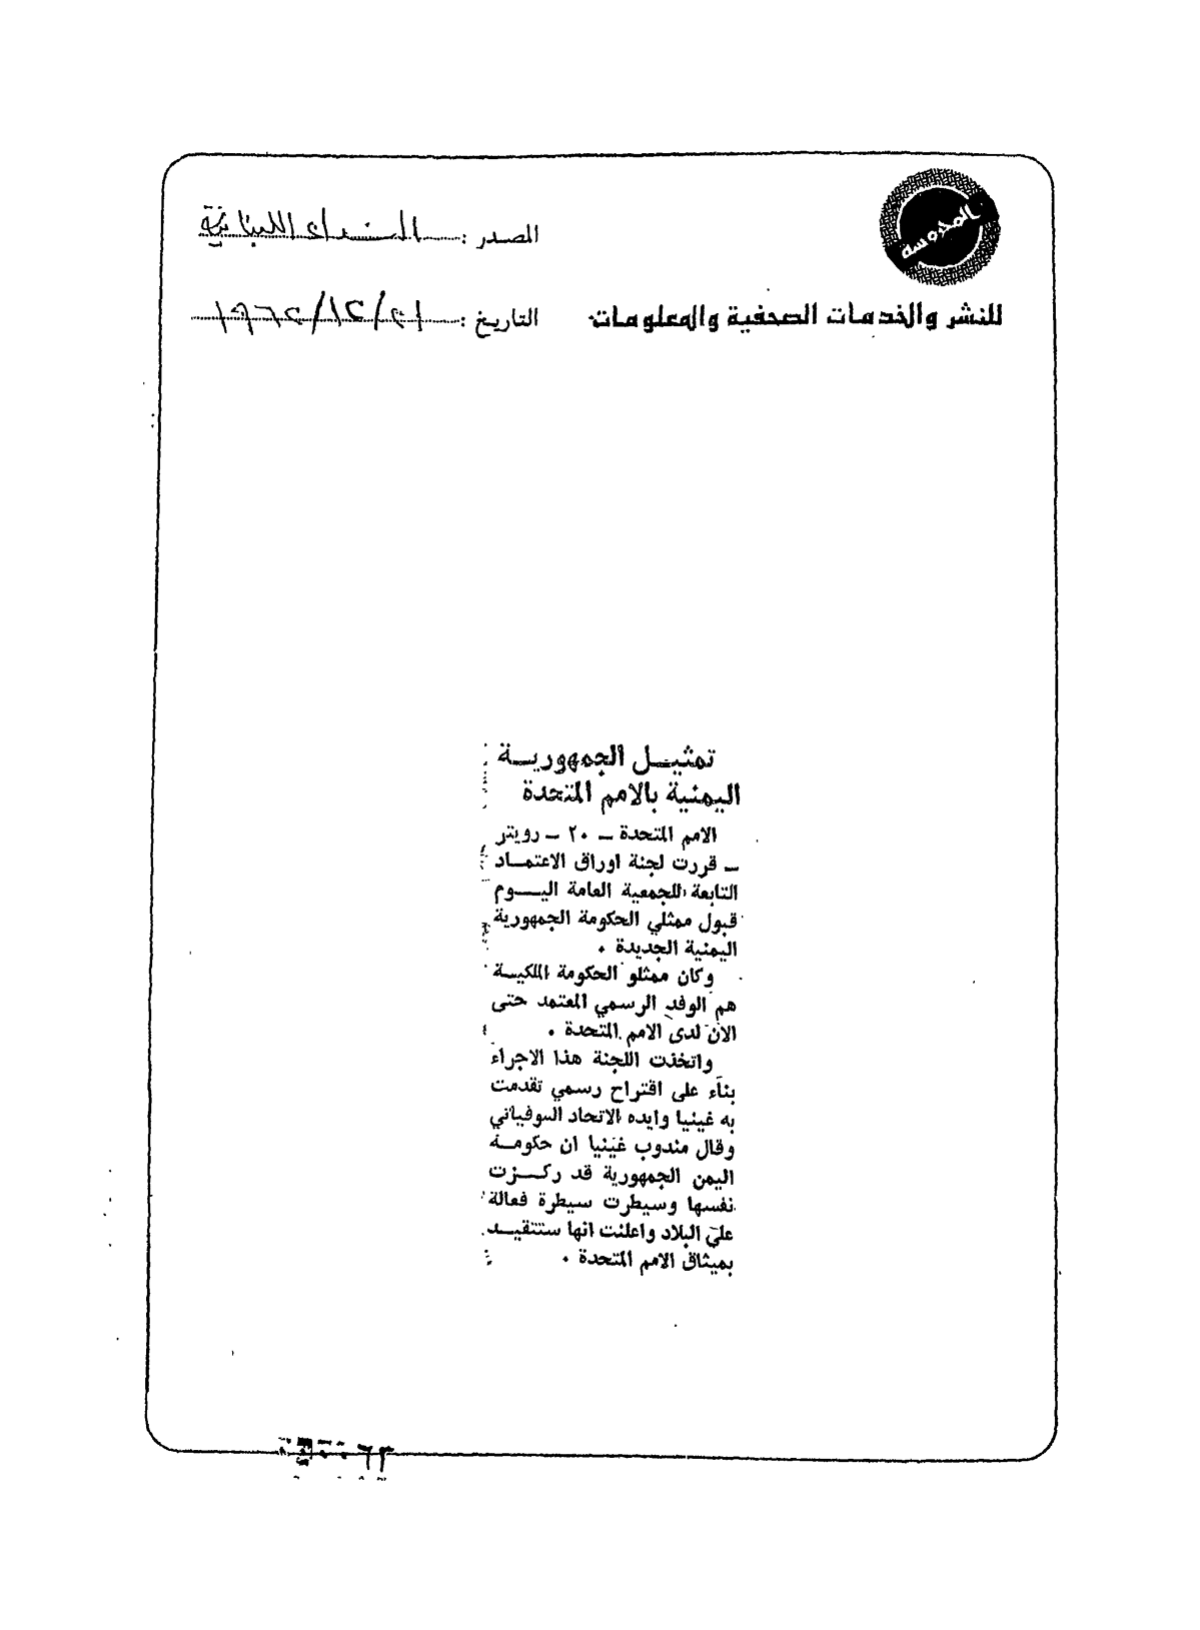 المحروسة
المصدر : النداء اللبنانية
للنشر والخدمات الصحفية والمعلومات
التاريخ : ٢١/١٢/١٩٦٢
تمثيـل الجمهوريـة
اليمنية بالامم المتحدة
الامم المتحدة ــ ٢٠ ــ رويتر
ــ قررت لجنة اوراق الاعتمـاد
التابعة للجمعية العامة اليــوم
قبول ممثلي الحكومة الجمهورية
اليمنية الجديدة ٠
وكان ممثلو الحكومة الملكيـة
هم الوفد الرسمي المعتمد حتى
الان لدى الامم المتحدة ٠
واتخذت اللجنة هذا الاجراء
بناء على اقتراح رسمي تقدمت
به غينيا وايده الاتحاد السوفياتي
وقال مندوب غينيا ان حكومـة
اليمن الجمهورية قد ركـزت
نفسها وسيطرت سيطرة فعالة
على البلاد واعلنت انها ستتقيـد
بميثاق الامم المتحدة ٠